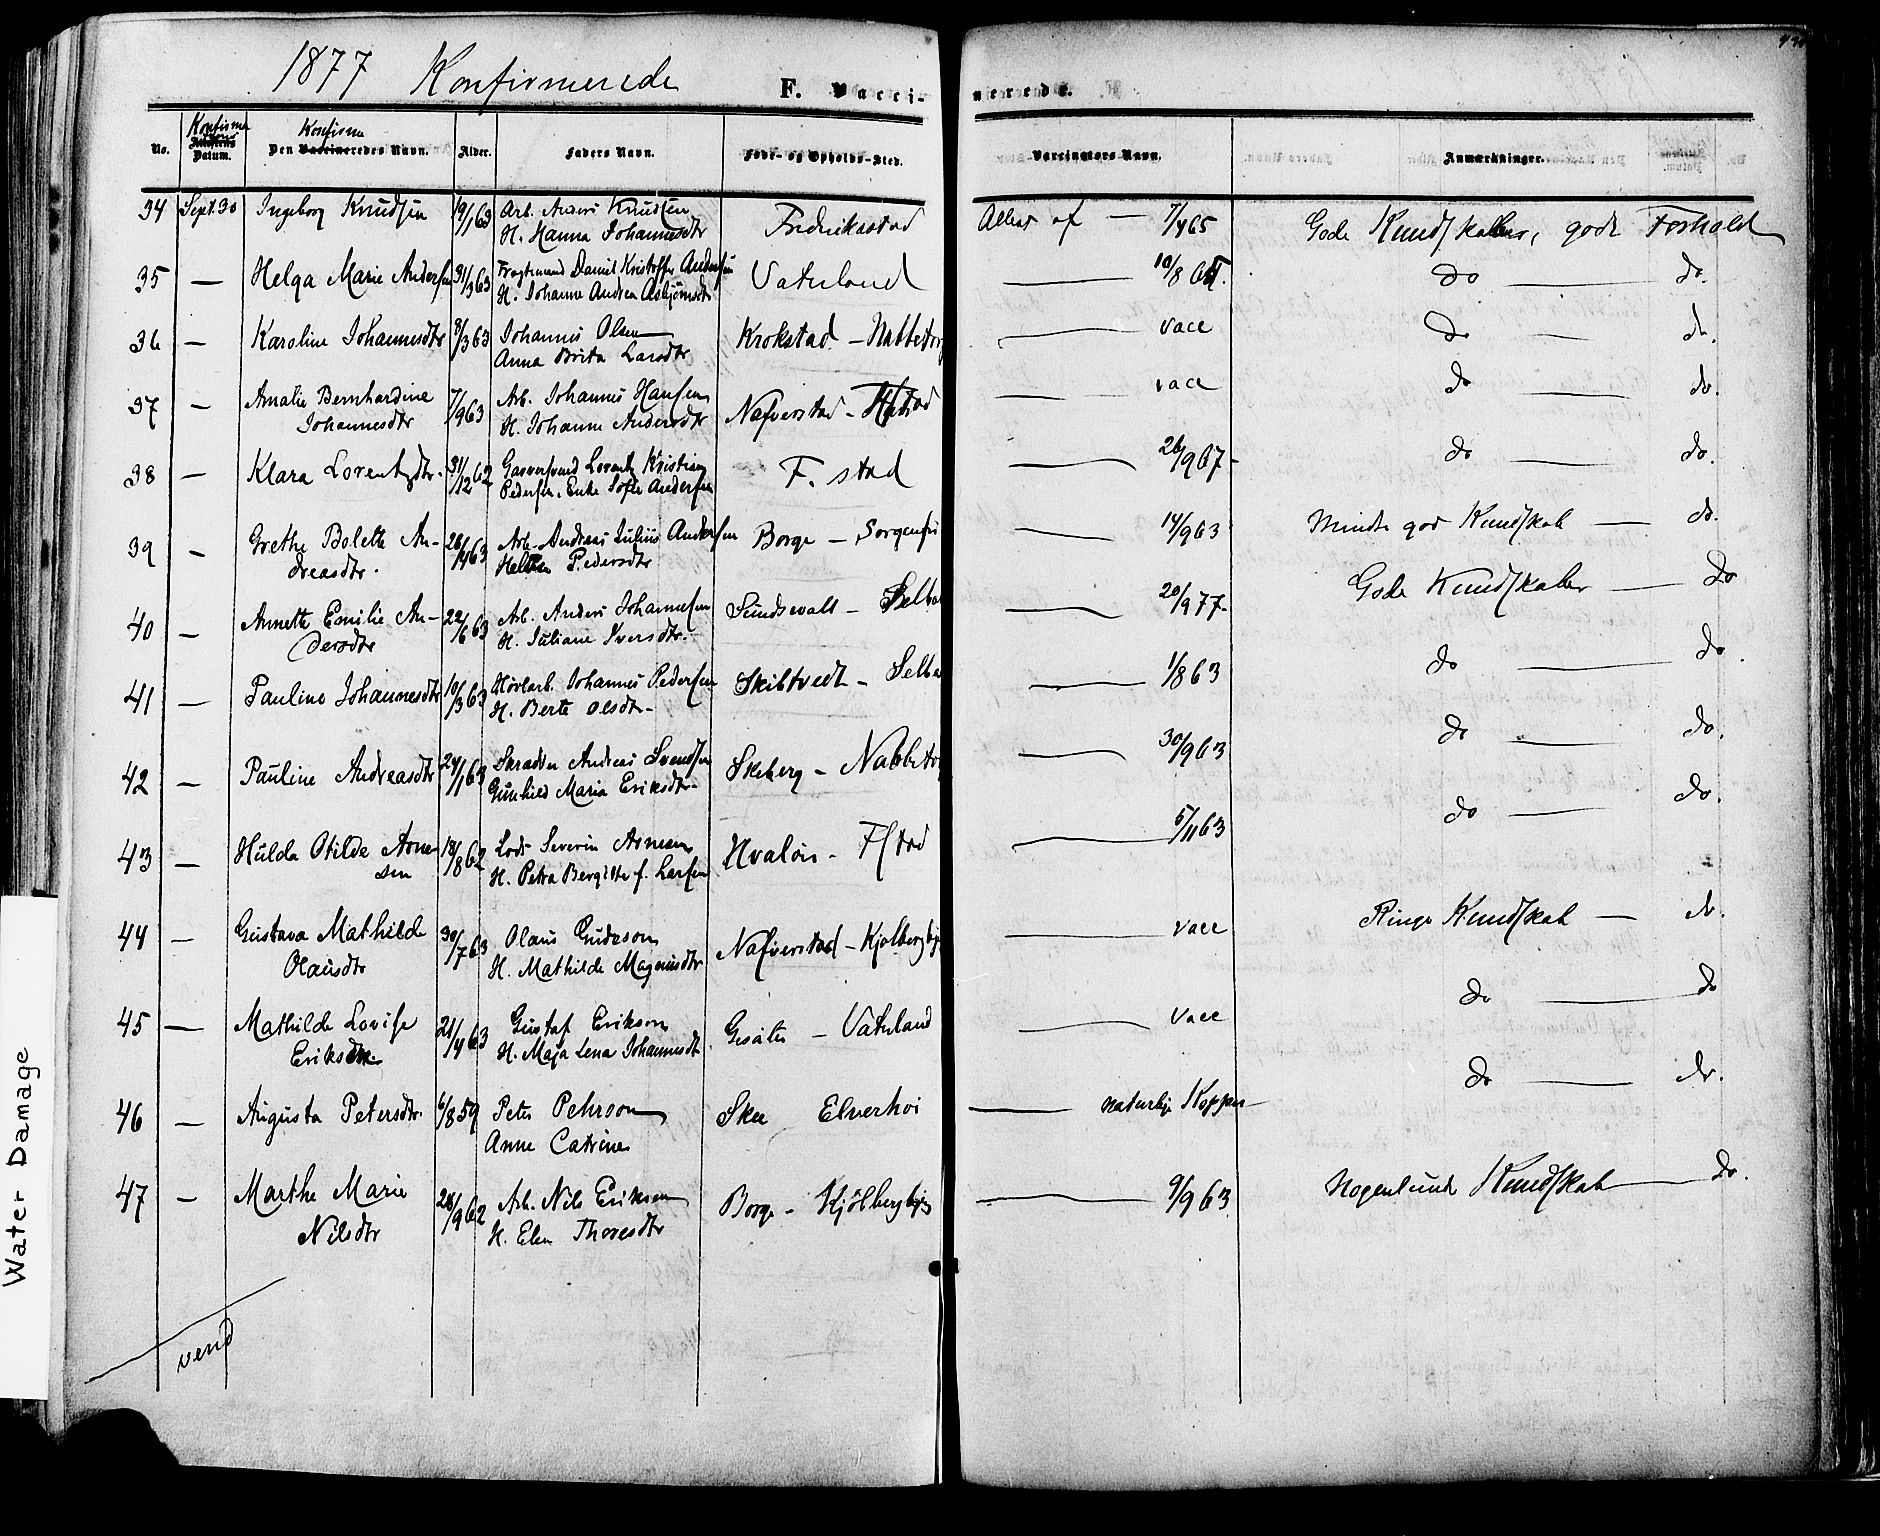 1877 Konfirmerede
F. Vacci- nerede.
No. Konfirma tions Datum. Konfirma Den Vaccineredes Navn. Alder. Faders Navn. Føde- og Opholds-Sted. Vaccinators Navn. Anmærkninger.
34 Sept. 30 Ingeborg Knudsen 19/1 63 Arb. Anders Knudsen Fredriksstad Attest af — 7/4 65 Gode Kundskaber, gode Forhold
H. Hanna Johannesdtr
35 — Helga Marie Andersen 31/3 63 Fragtmand Daniel Kristoffer Andersen Vaterland — 10/8 65. do — do.
H. Johanne Andrea Asbjørnsdtr
36 — Karoline Johannesdtr 8/3 63 Johannes Olsen Krokstad — Nabbetorp — vacc do — do.
Anna Brita Larsdtr
37 — Amalie Bernhardine 7/9 63 Arb. Johannes Hansen Nafverstad — — vacc do — do.
Johannesdtr H. Johanne Andersdtr
38 — Klara Lorentzdtr. 31/12 62 Lorentz Kristian F. stad — 26/9 67 — do — do.
Pedersen, Enke Sofie Andersen
39 — Grethe Bolette An- 26/4 63 Arb. Andreas Julius Andersen Borge — Sorgenfri — 14/9 63 Mindre god Kundskab — do.
dreasdtr. Pedersdtr
40 — Annette Emilie An- 22/6 63 Arb. Anders Johannesen Sundsvall — Selbak — 20/9 77. Gode Kundskaber — do
dersdtr H. Juliane Iversdtr.
41 — Pauline Johannesdtr 10/3 63 Høvlarb. Johannes Pedersen Skibtvedt — Selbak — 1/8 63 do — do.
H. Berte Olsdtr.
42 — Pauline Andreasdtr 24/1 63 Skrædder Andreas Svendsen Skeberg — Nabbetorp — 30/9 63 do — do.
Gunhild Maria Eriksdtr.
43 — Hulda Otilde Arne- 18/8 62 Lods Severin Arnesen Hvaløer — F.stad — 5/11 63 do — do.
sen H. Petra Bergitte f. Larsen
44 — Gustava Mathilde 30/7 63 Olaus Gudeson Nafverstad — Kjølbergbye — vacc Ringe Kundskab — do.
Olausdtr H. Mathilde Magnusdtr
45 — Mathilde Lovise 21/4 63 Gustaf Erikson — Vaterland — vacc do — do
Eriksdtr. H. Maja Lena Johannesdtr
46 — Augusta Petersdtr. 6/8 59 Peter Peterson Skee Elverhøi — naturlige Kopper do — do.
Anne Catrine
47 — Marthe Marie 28/9 62 Arb. Nils Eriksen Borge — Kjølbergbye — 9/9 63 Nogenlunde Kundskab — do.
Nilsdtr H. Elen Thoresdtr
vend
Water Damage